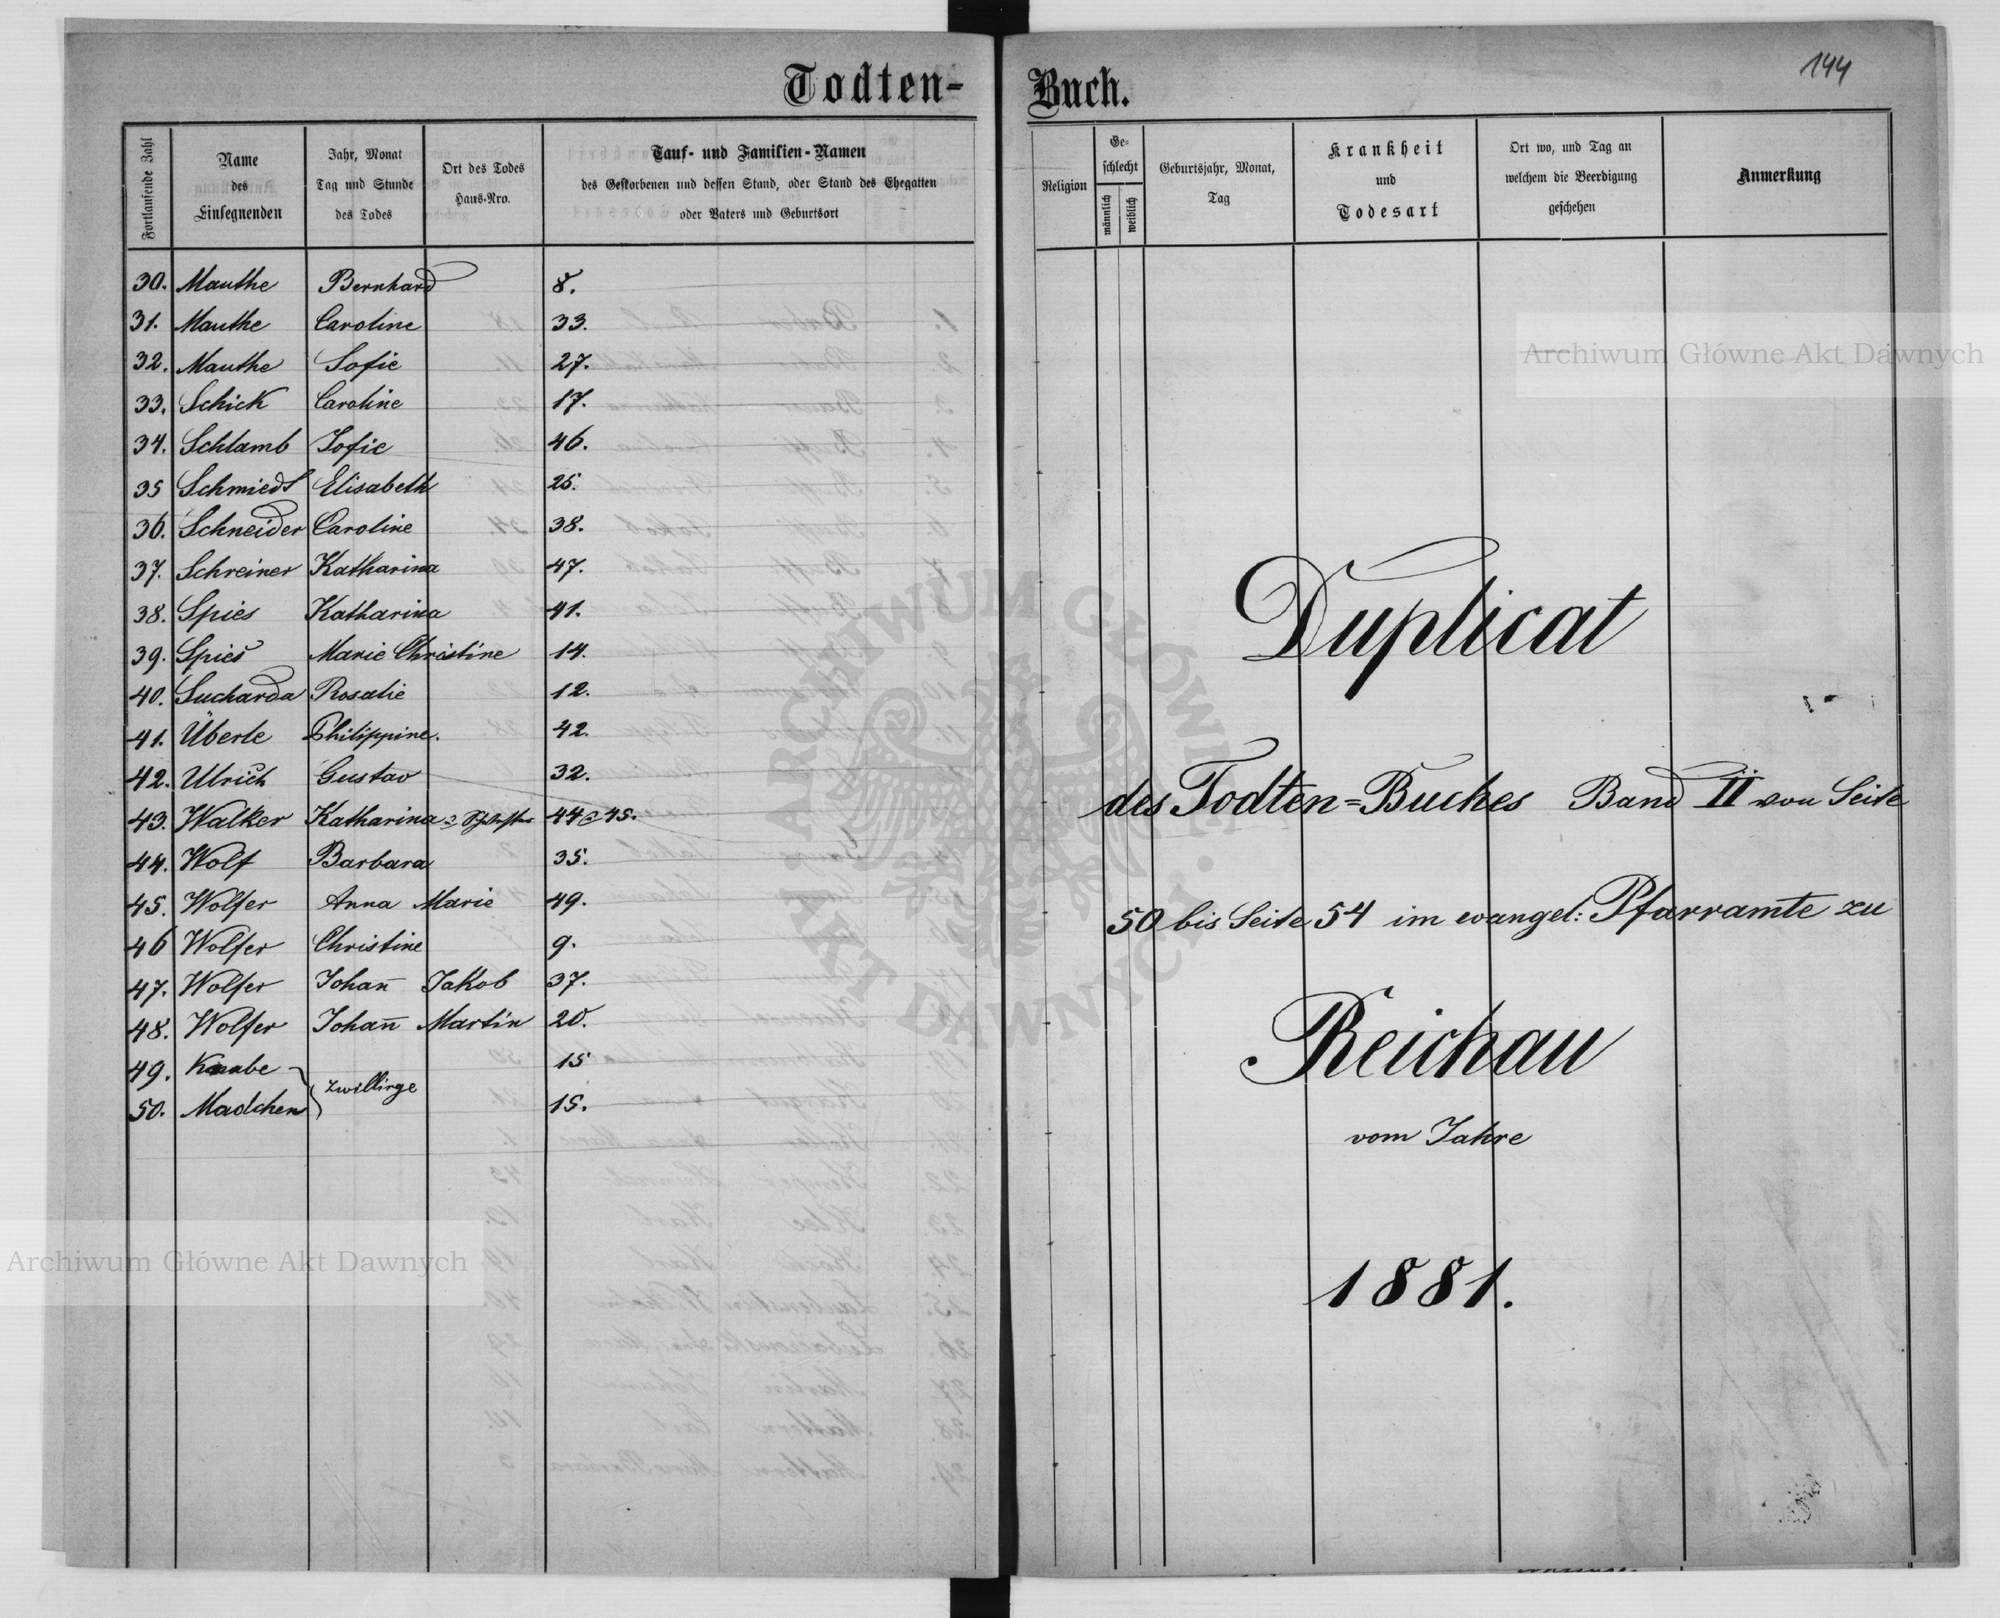 Todten-
Fortlaufende Zahl
Name
des
Einsegnenden
Jahr, Monat
Tag und Stunde
des Todes
Ort des Todes
Haus-Nro.
Tauf- und Familien-Namen
des Gestorbenen und dessen Stand, oder Stand des Ehegatten
oder Vaters und Geburtsort
30. Mauthe Bernhard 8.
31. Mauthe Caroline 33.
32. Mauthe Sofie 27.
33. Schick Caroline 17.
34. Schlamb Sofie 46.
35 Schmiedt Elisabeth 25.
36. Schneider Caroline 38.
37. Schreiner Katharina 47.
38. Spies Katharina 41.
39. Spies Marie Christine 14.
40. Sucharda Rosalie 12.
41. Überle Philippine. 42.
42. Ulrich Gustav 32.
43. Walker Katharina 44 45.
44. Wolf Barbara 35.
45. Wolfer Anna Marie 49.
46 Wolfer Christine 9.
47. Wolfer Johan̄ Jakob 37.
48. Wolfer Johan̄ Martin 20.
49. Knabe 15
zwillinge
50. Madchen 15.
Archiwum Główne Akt Dawnych
144
Buch.
Religion
Ge-
schlecht
männlich
weiblich
Geburtsjahr, Monat,
Tag
Krankheit
und
Todesart
Ort wo, und Tag an
welchem die Beerdigung
geschehen
Anmerkung
Archiwum Główne Akt Dawnych
Duplicat
des Todten=Buches Band II von Seite
50 bis Seite 54 im evangel: Pfarramte zu
Reichau
vom Jahre
1881.
ARCHIWUM GŁÓWNE
AKT DAWNYCH